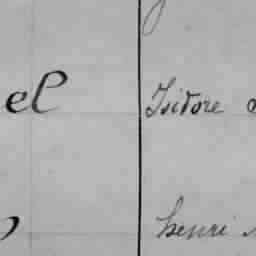 el Isidore
henri